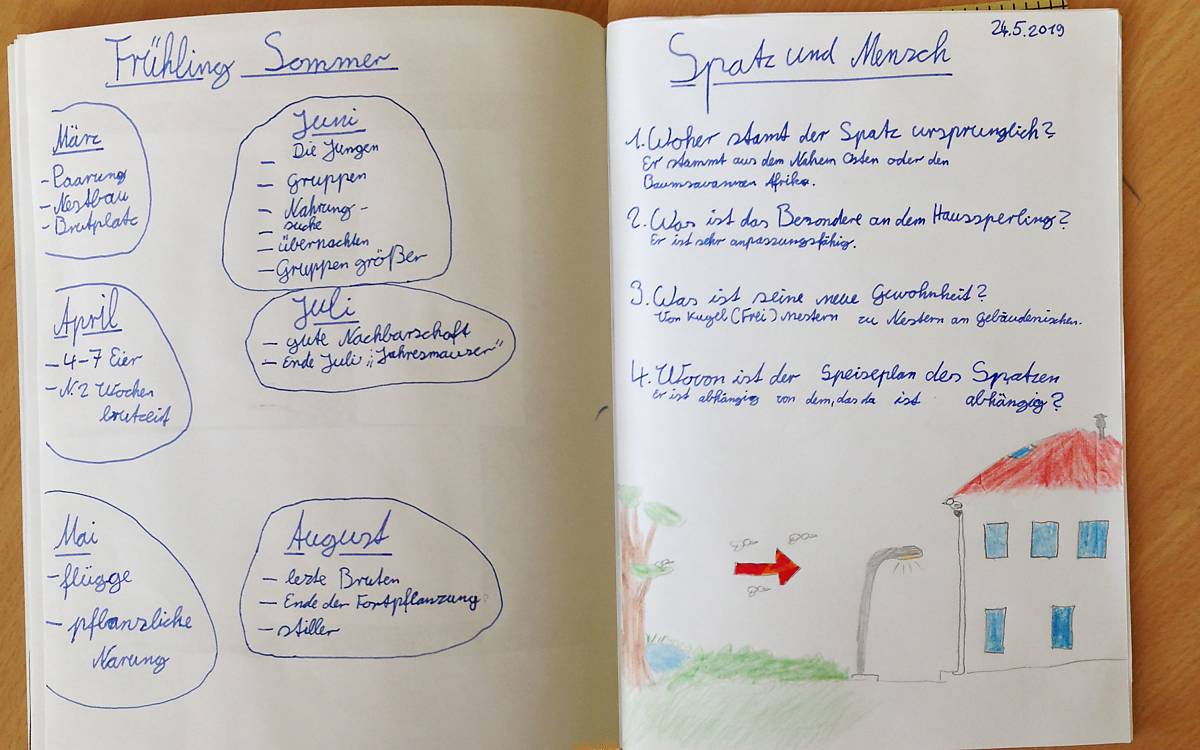 Frühling Sommer
März
- Paarung
- Nestbau
- Brutplatz
April
- 4-7 Eier
- N. 2 Wochen
brutzeit
Mai
- flügge
- pflanzliche
Narung
Juni
— Die Jungen
— gruppen
— Nahrung-
— suche
— übernachten
— Gruppen größer
Juli
— gute Nachbarschaft
— Ende Juli „Jahresmauser"
August
— lezte Bruten
— Ende der Fortpflanzung
— stiller
24.5.2019
Spatz und Mensch
1. Woher stamt der Spatz ursprunglich?
Er stammt aus dem Nahem Osten oder den
Baumsavannen Afrika.
2. Was ist das Besondere an dem Haussperling?
Er ist sehr anpassungsfähig.
3. Was ist seine neue Gewohnheit?
Von Kugel (Frei) nestern zu Nestern an Gebäudenischen.
4. Wovon ist der Speiseplan des Spatzen
Er ist abhängig von dem, das da ist abhängig?